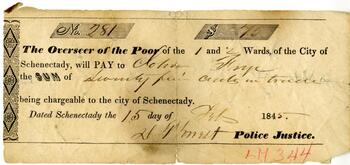 No. 281 $ 75
The Overseer of the Poor of the 1 and 2 Wards, of the City of
Schenectady, will PAY to
the SUM of seventy five cents in
being chargeable to the city of Schenectady.
Dated Schenectady the 15 day of Feb 1845
Police Justice.
LH 344